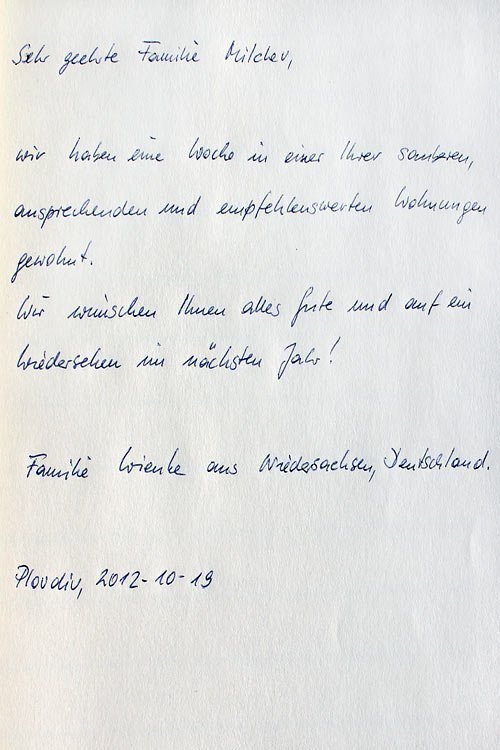 Sehr geehrte Familie Milchev,
wir haben eine Woche in einer Ihrer sauberen,
ansprechenden und empfehlenswerten Wohnungen
gewohnt.
Wir wünschen Ihnen alles gute und auf ein
Wiedersehen im nächsten Jahr!
Familie Wienke aus Niedersachsen, Deutschland.
Plovdiv, 2012-10-19